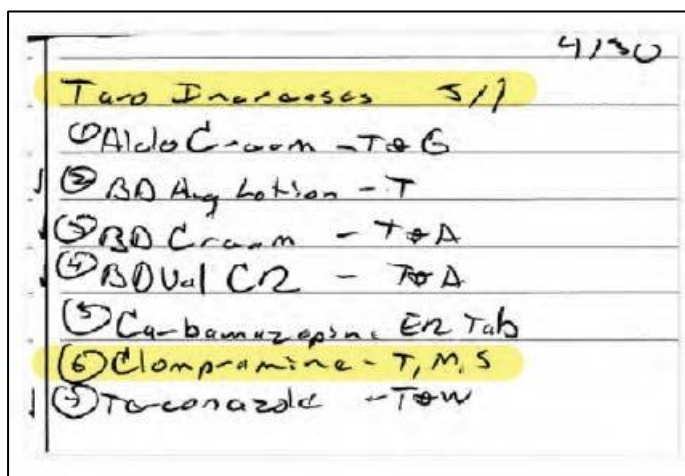 4/30
Taro Increases 5/1
① Aldo Cream - T & G
② BD Aug Lotion - T
③ BD Cream - T & A
④ BD Val CR - T & A
⑤ Carbamazapine ER Tab
⑥ Clompramine - T, M, S
⑦ Terconazole - T & W